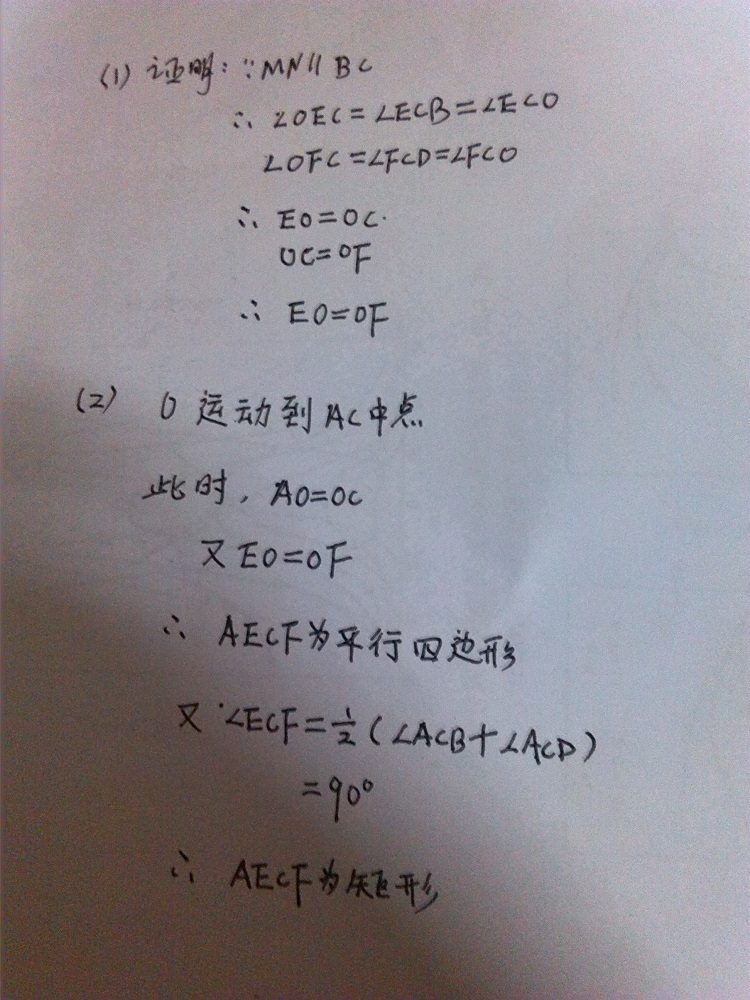 (1) 证明：∵MN∥BC
∴ ∠OEC=∠ECB=∠ECO
∠OFC=∠FCD=∠FCO
∴ EO=OC.
OC=OF
∴ EO=OF
(2) O运动到AC中点
此时，AO=OC
又EO=OF
∴ AECF为平行四边形
又∵∠ECF=½(∠ACB+∠ACD)
=90°
∴ AECF为矩形